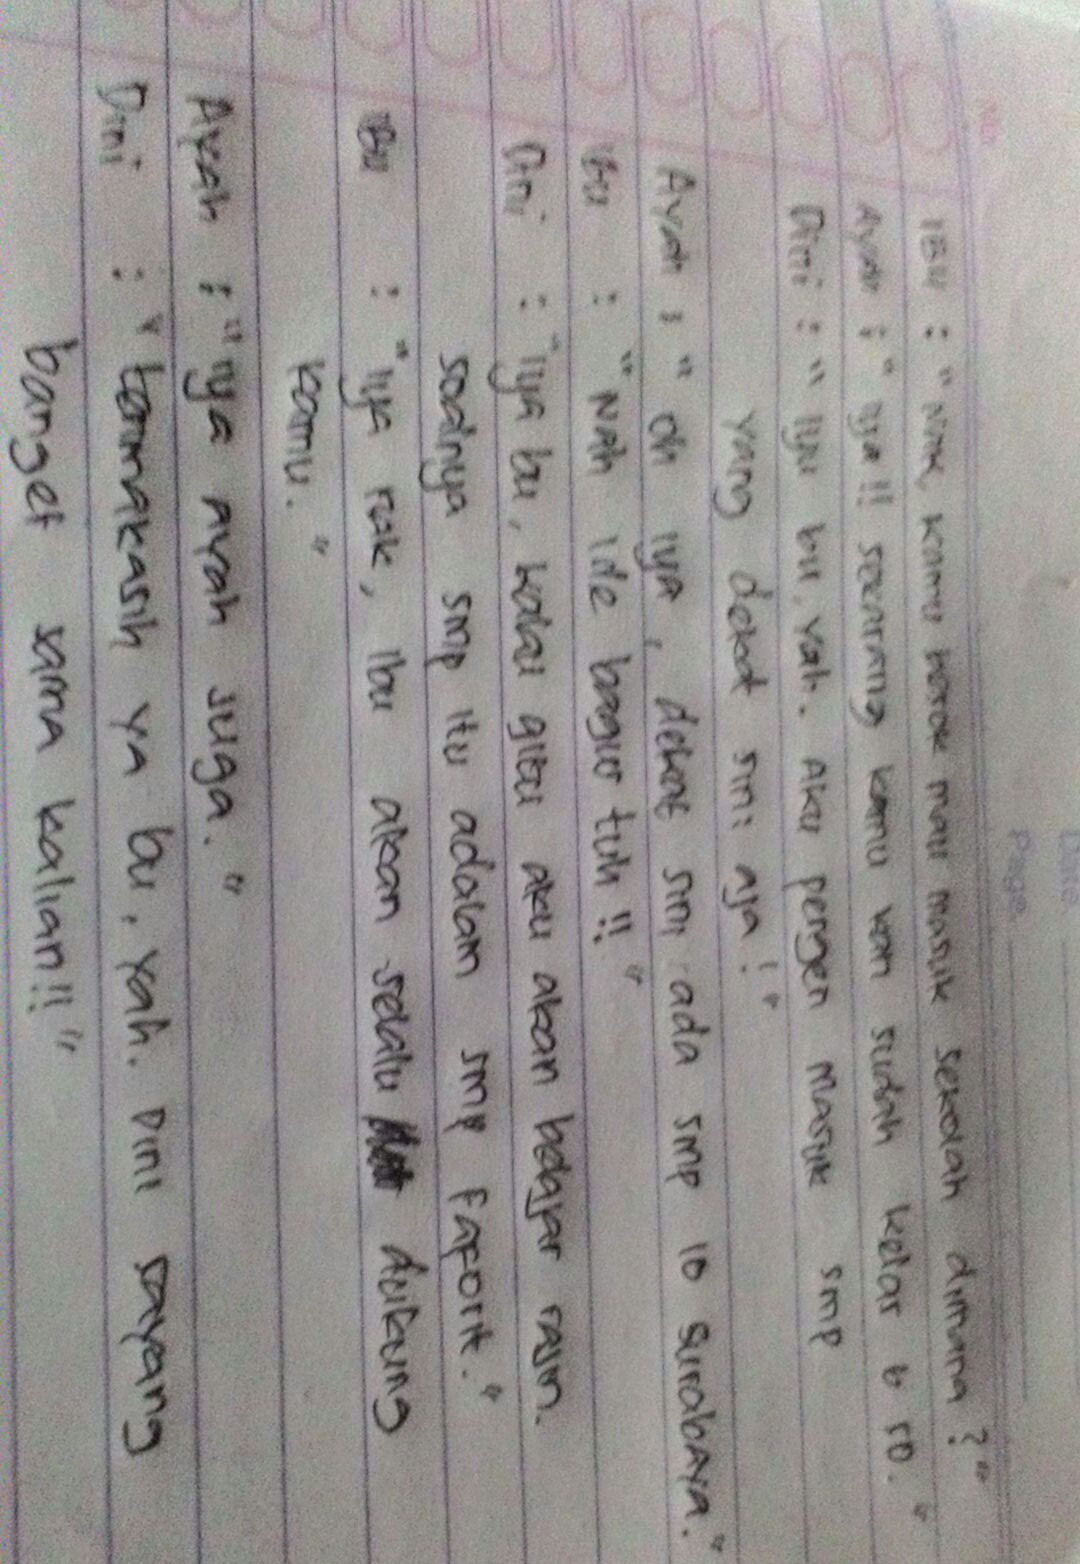 Date
Page
No.
IBU : "Nak, kamu besok mau masuk sekolah dimana ?"
Ayah : "iya!! sekarang kamu kan sudah kelas 6 SD."
Dini : "Iya bu, yah. Aku pengen masuk smp
yang deket sini aja!"
Ayah : "oh iya, dekat sini ada smp 10 Surabaya."
Ibu : "Nah ide bagus tuh!!"
Dini : "Iya bu, kalau gitu aku akan belajar rajin.
soalnya smp itu adalah smp faforit."
Ibu : "Iya nak, Ibu akan selalu dukung
kamu."
Ayah : "Iya ayah juga."
Dini : "terimakasih ya bu, yah. Dini sayang
banget sama kalian!!"